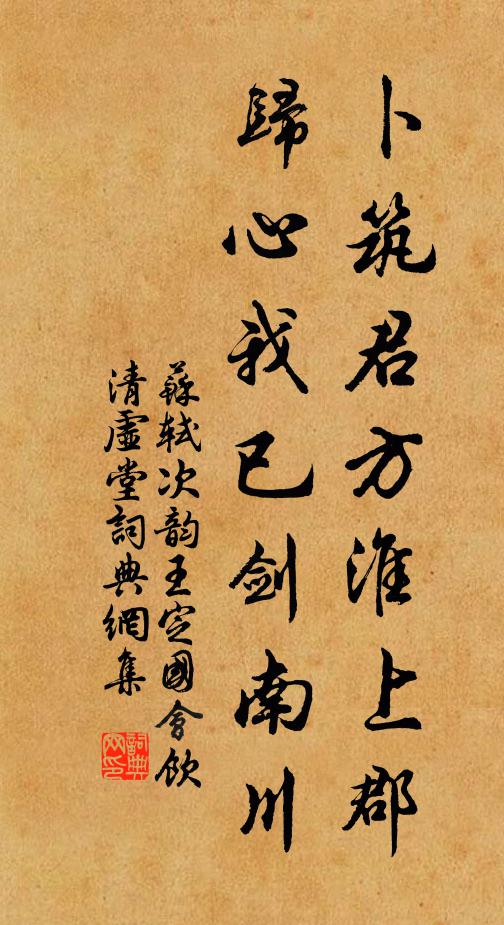 卜筑君方淮上郡
歸心我已劍南川
蘇軾次韵王定國會飲
清虛堂詞典網集
詞典網印